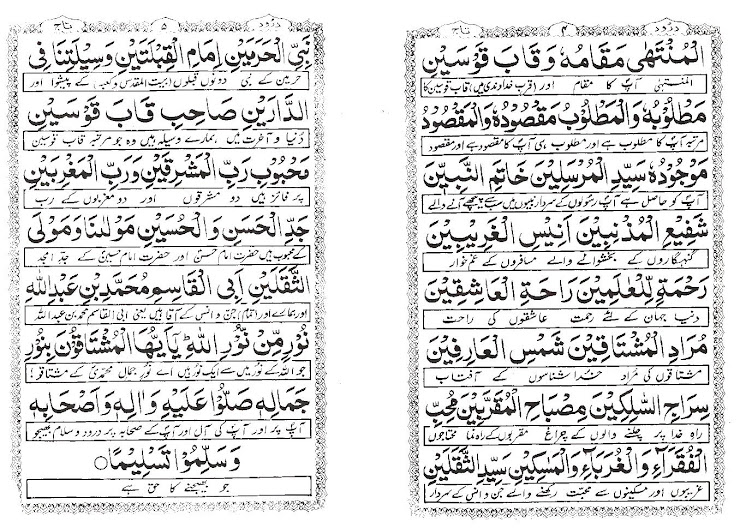 درود ۴ تاج
الْمُنْتَهٰى مَقَامُهٗ وَقَابَ قَوْسَيْنِ
المنتہیٰ آپ کا مقام اور (قرب خداوندی میں) قاب قوسین کا
مَطْلُوْبُهٗ وَالْمَطْلُوْبُ مَقْصُوْدُهٗ وَالْمَقْصُوْدُ
مرتبہ آپ کا مطلوب ہے اور مطلوب ہی آپ کا مقصود ہے اور مقصود
مَوْجُوْدُهٗ سَيِّدِ الْمُرْسَلِيْنَ خَاتِمِ النَّبِيّٖنَ
آپ کو حاصل ہے آپ رسولوں کے سردار نبیوں میں سب سے پیچھے آنے والے
شَفِيْعِ الْمُذْنِبِيْنَ اَنِيْسِ الْغَرِيْبِيْنَ
گنہگاروں کے بخشوانے والے مسافروں کے غم خوار
رَحْمَةٍ لِّلْعٰلَمِيْنَ رَاحَةِ الْعَاشِقِيْنَ
دنیا جہان کے لئے رحمت عاشقوں کی راحت
مُرَادِ الْمُشْتَاقِيْنَ شَمْسِ الْعَارِفِيْنَ
مشتاقوں کی مراد خدا شناسوں کے آفتاب
سِرَاجِ السَّالِكِيْنَ مِصْبَاحِ الْمُقَرَّبِيْنَ مُحِبِّ
راہ خدا پر چلنے والوں کے چراغ مقربوں کے راہ نما محتاجوں
الْفُقَرَآءِ وَالْغُرَبَآءِ وَالْمَسٰكِيْنِ سَيِّدِ الثَّقَلَيْنِ
غریبوں اور مسکینوں سے محبت رکھنے والے جن و انس کے سردار
درود ۵ تاج
نَبِيِّ الْحَرَمَيْنِ اِمَامِ الْقِبْلَتَيْنِ وَسِيْلَتِنَا فِى
حرمین کے نبی دونوں قبلوں (بیت المقدس و کعبہ) کے پیشوا اور
الدَّارَيْنِ صَاحِبِ قَابَ قَوْسَيْنِ
دنیا و آخرت میں ہمارے وسیلہ ہیں وہ جو مرتبہ قاب قوسین
مَحْبُوْبِ رَبِّ الْمَشْرِقَيْنِ وَرَبِّ الْمَغْرِبَيْنِ
پر فائز ہیں دو مشرقوں اور دو مغربوں کے رب
جَدِّ الْحَسَنِ وَالْحُسَيْنِ مَوْلٰىنَا وَمَوْلَى
کے محبوب ہیں حضرت امام حسنؓ اور حضرت امام حسینؓ کے جد امجد
الثَّقَلَيْنِ اَبِى الْقَاسِمِ مُحَمَّدِ بْنِ عَبْدِ اللّٰهِ
اور ہمارے اور (تمام) جن و انس کے آقا ہیں یعنی ابی القاسم محمد بن عبد اللہ
نُوْرٍ مِّنْ نُوْرِ اللّٰهِ يٰٓاَيُّهَا الْمُشْتَاقُوْنَ بِنُوْرِ
جو اللہ کے نور میں سے ایک نور ہیں اے نور جمال محمدیؐ کے مشتاقو!
جَمَالِهٖ صَلُّوْا عَلَيْهِ وَاٰلِهٖ وَاَصْحَابِهٖ
آپ پر اور آپ کی آل اور آپ کے صحابہ پر درود و سلام بھیجو
وَسَلِّمُوْا تَسْلِيْمًا
جو بھیجنے کا حق ہے